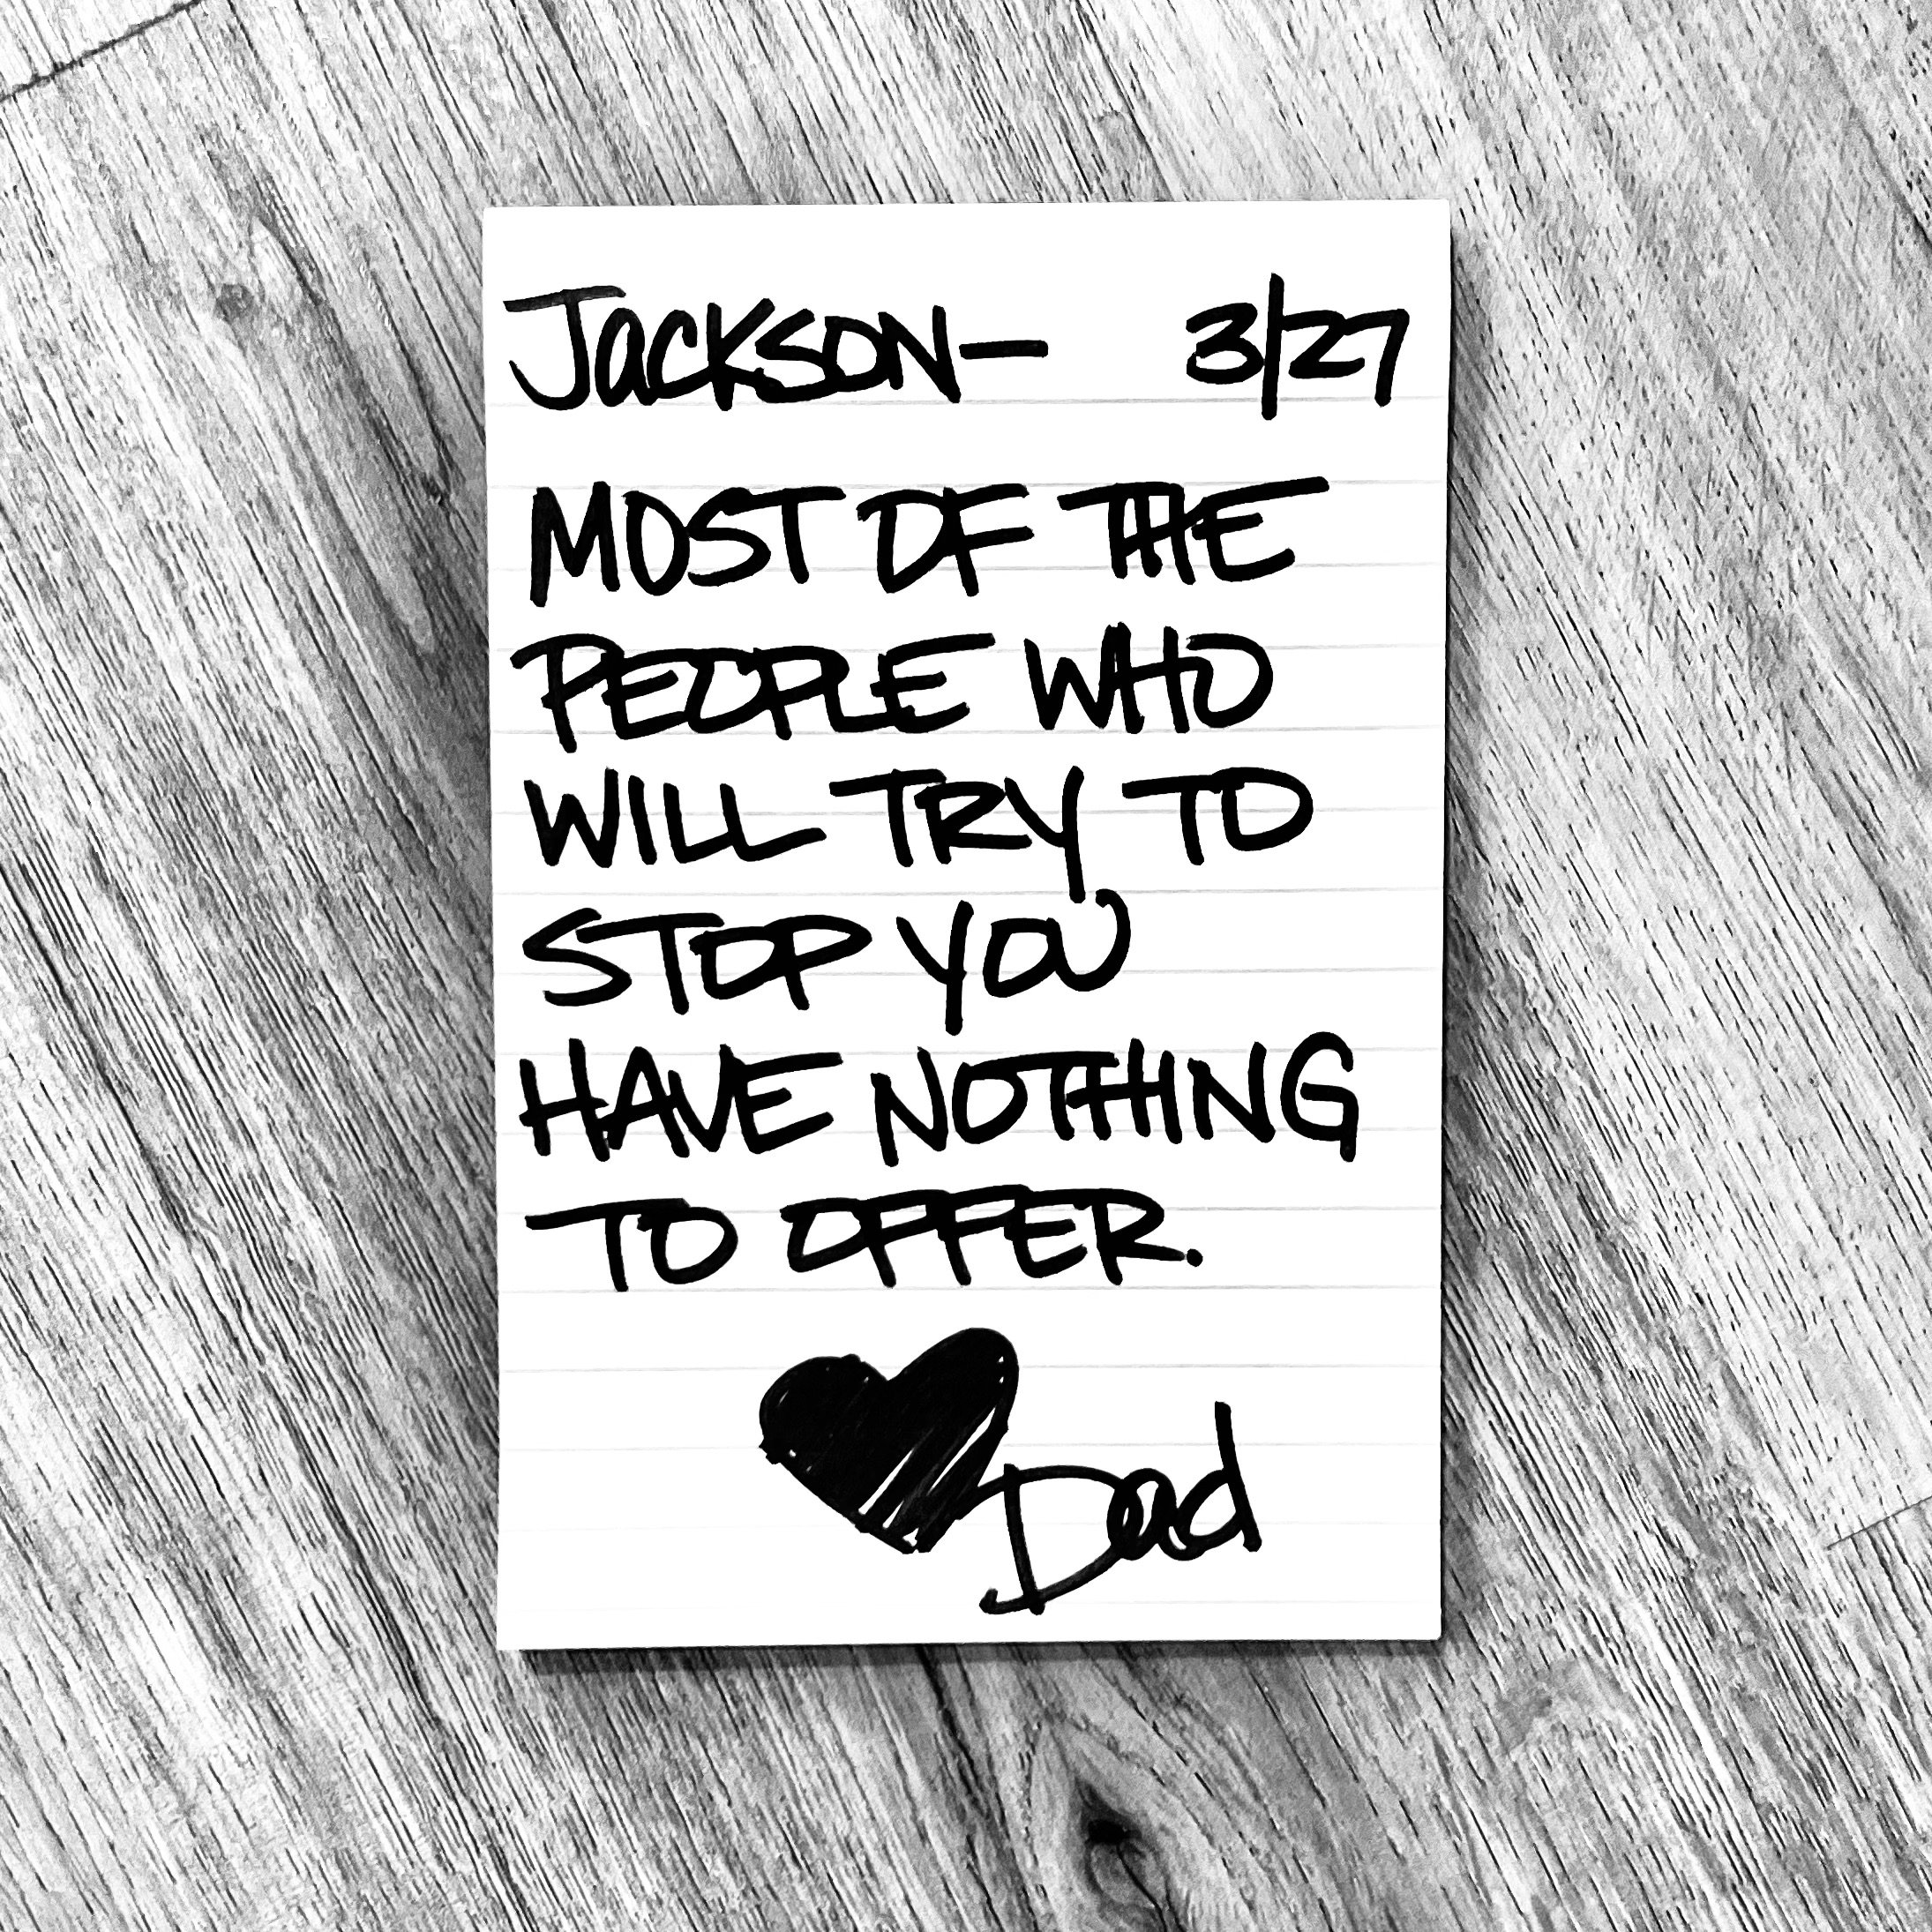 Jackson— 3/27
MOST OF THE
PEOPLE WHO
WILL TRY TO
STOP YOU
HAVE NOTHING
TO OFFER.
Dad